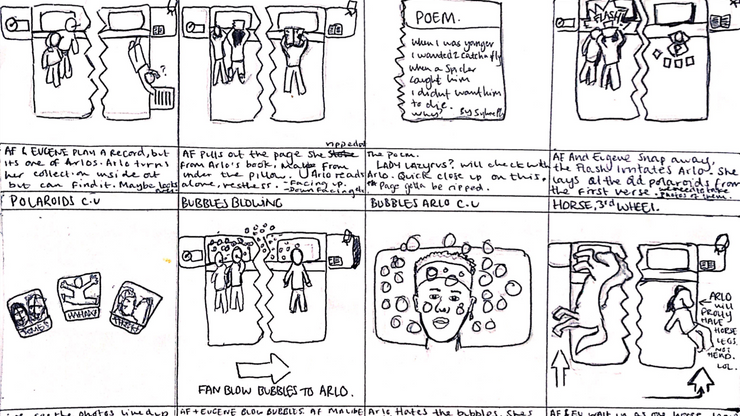 ?
POEM.
When I was younger
I wanted 2 catch a fly
when a Spider
caught him
I didnt want him
to die.
why?
FLASH!
AF & EUGENE PLAY A RECORD, but
its one of Arlos. Arlo turns
her collection inside out
but can find it. Maybe looks
AF Pulls out the page she
from Arlo's book. Maybe From
under the pillow. Arlo reads
alone, restless. - Facing up.
ripped out
The poem.
LADY LAZYRUS? will check with
Arlo. Quick close up on this.
* Page gotta be ripped.
AF And Eugene Snap away,
the Flash irritates Arlo. She
lays all the old polaroids from
the first verse.
photos of them.
POLAROIDS C.U
BUBBLES BLOWING
BUBBLES ARLO C.U
HORSE, 3rd WHEEL.
FAN BLOW BUBBLES TO ARLO.
ARLO
will
PROLLY
HAVE
HORSE
LEGS.
NOT
HEAD.
LOL.
the photos lined up
AF + EUGENE BLOW BUBBLES. AF
Arlo Hates the bubbles. Shes